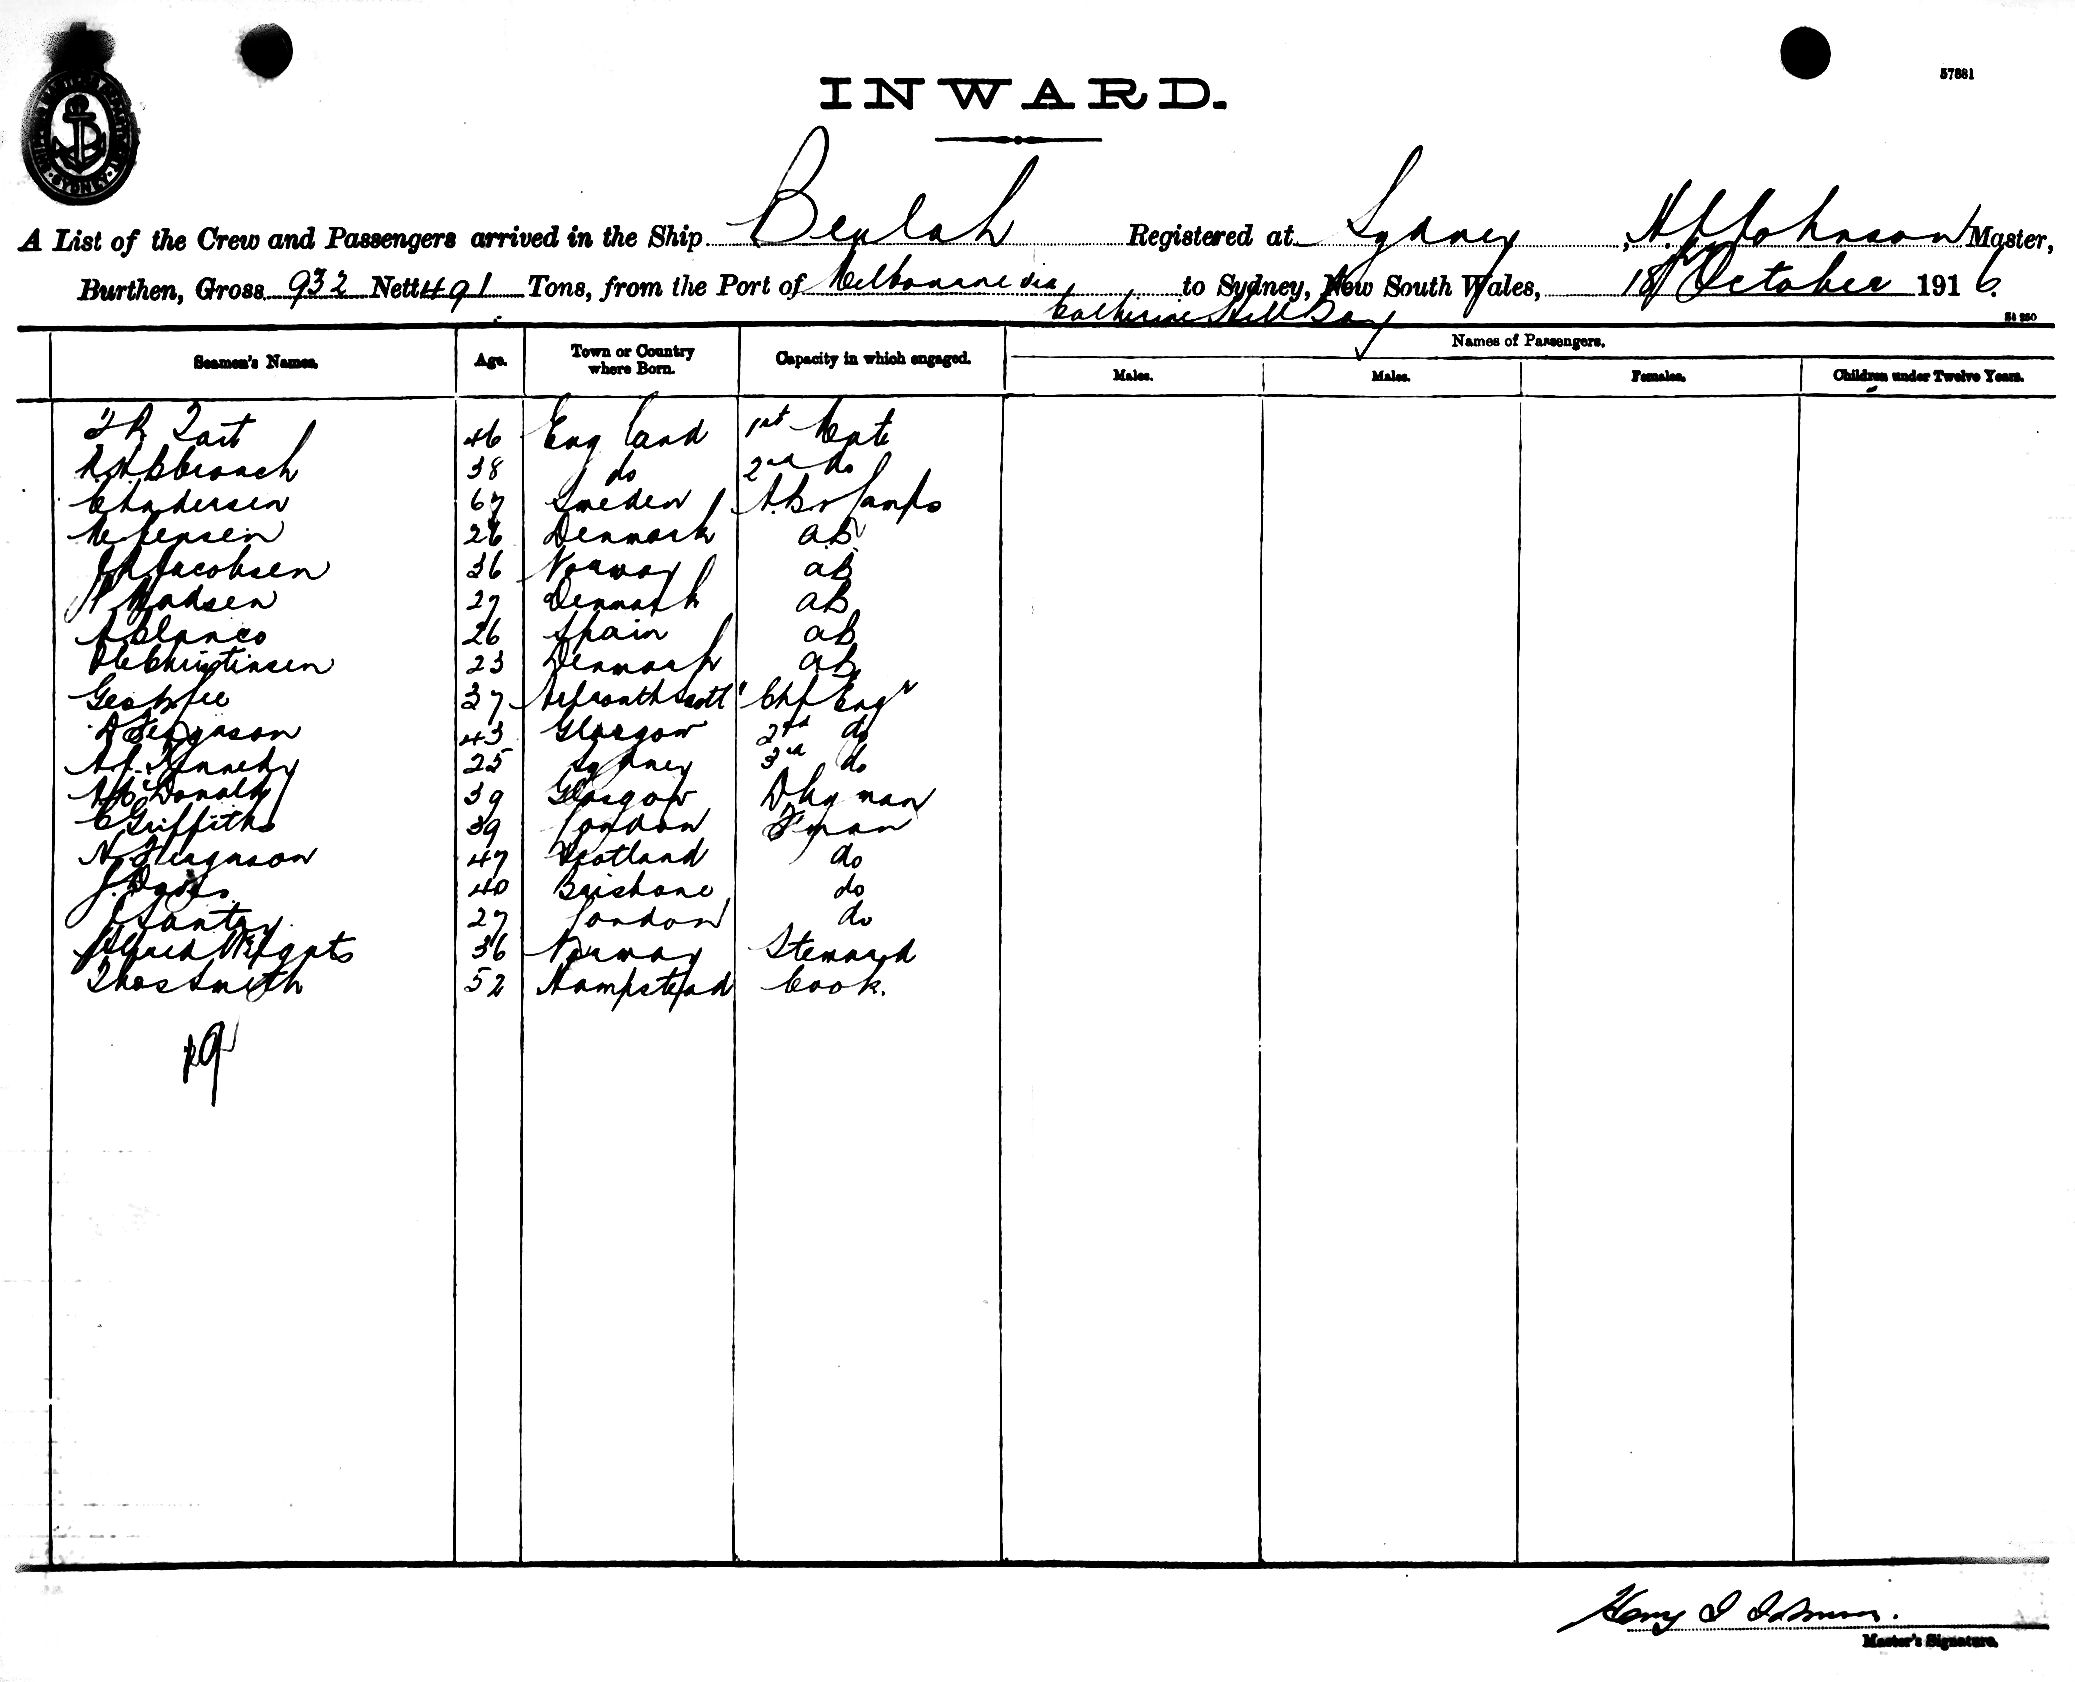 57881
INWARD.
A List of the Crew and Passengers arrived in the Ship Beulah Registered at Sydney, H. J. Johnson Master,
Burthen, Gross 932 Nett 491 Tons, from the Port of Melbourne via Catherine Hill Bay to Sydney, New South Wales, 18 October 1916.
St 250
Seamen's Names. Age. Town or Country where Born. Capacity in which engaged. Names of Passengers.
Males. Males. Females. Children under Twelve Years.
46 England 1st Mate
38 do 2nd do
C Andersen 67 Sweden A.B & Lamps
Jensen 26 Denmark a.B.
Jacobsen 36 Norway aB
Madsen 27 Denmark aB
A Blanco 26 Spain aB
Ole Christinsen 23 Denmark aB
Geo 37 Chf Engr
D Ferguson 43 Glasgow 2nd do
Kennedy 25 Sydney 3rd do
McDonald 39 Glasgow Dkyman
C Griffiths 39 London Fman
N Ferguson 47 Scotland do
J. 40 Brisbane do
27 London do
36 Norway Steward
Thos Smith 52 Hampstead Cook.
19
Henry J Johnson.
Master's Signature.